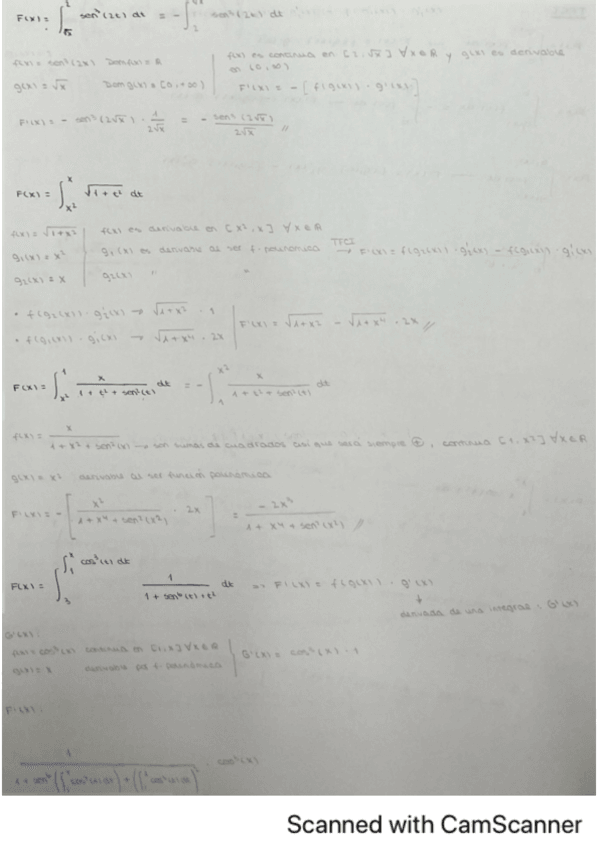 F(x) = ∫_{√x}^{2} sen³(2t) dt = - ∫_{2}^{√x} sen³(2t) dt
f(x) = sen³(2x) Dom f(x) = R | f(x) es continua en [2, √x] ∀x∈R y g(x) es derivable
en (0, ∞)
g(x) = √x Dom g(x) = [0, +∞) | F'(x) = - [f(g(x)) · g'(x)]
F'(x) = - sen³(2√x) · 1/(2√x) = - sen³(2√x)/(2√x) //
F(x) = ∫_{x²}^{x} √(1+t²) dt
f(x) = √(1+x²) | f(x) es derivable en [x², x] ∀x∈R
g₁(x) = x² | g₁(x) es derivable al ser f. polinómica TFCI → F'(x) = f(g₂(x)) · g₂'(x) - f(g₁(x)) · g₁'(x)
g₂(x) = x | g₂(x) " "
• f(g₂(x)) · g₂'(x) → √(1+x²) · 1
• f(g₁(x)) · g₁'(x) → √(1+x⁴) · 2x | F'(x) = √(1+x²) - √(1+x⁴) · 2x //
F(x) = ∫_{x²}^{1} x/(1+t²+sen²(t)) dt = - ∫_{1}^{x²} x/(1+t²+sen²(t)) dt
f(x) = x/(1+x²+sen²(x)) → son sumas de cuadrados así que será siempre ⊕, continua [1, x²] ∀x∈R
g(x) = x² derivable al ser función polinómica
F'(x) = - [x²/(1+x⁴+sen²(x²)) · 2x] = -2x³/(1+x⁴+sen²(x²)) //
F(x) = ∫_{3}^{∫_{1}^{x} cos³(t) dt} 1/(1+sen⁶(t)+t²) dt => F'(x) = f(g(x)) · g'(x)
↓
derivada de una integral: G'(x)
G'(x):
f(x) = cos³(x) continua en [1, x] ∀x∈R
g(x) = x derivable por f. polinómica } G'(x) = cos³(x) · 1
F'(x):
1/(1+sen⁶(∫_{1}^{x} cos³(t) dt)+(∫_{1}^{x} cos³(t) dt)²) · cos³(x)
Scanned with CamScanner